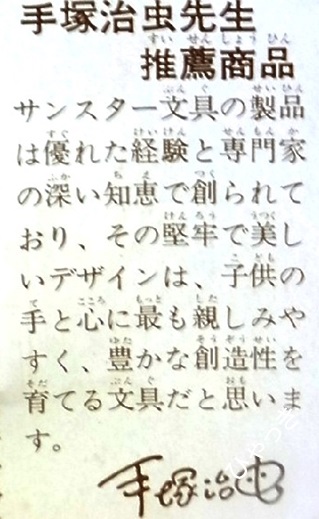 手塚治虫先生
推薦商品
サンスター文具の製品
は優れた経験と専門家
の深い知恵で創られて
おり、その堅牢で美し
いデザインは、子供の
手と心に最も親しみや
すく、豊かな創造性を
育てる文具だと思いま
す。
手塚治虫